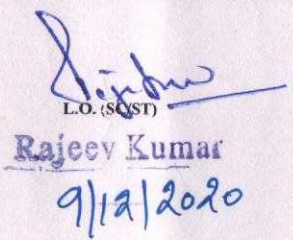 L.O. (SC/ST)
Rajeev Kumar
9/12/2020